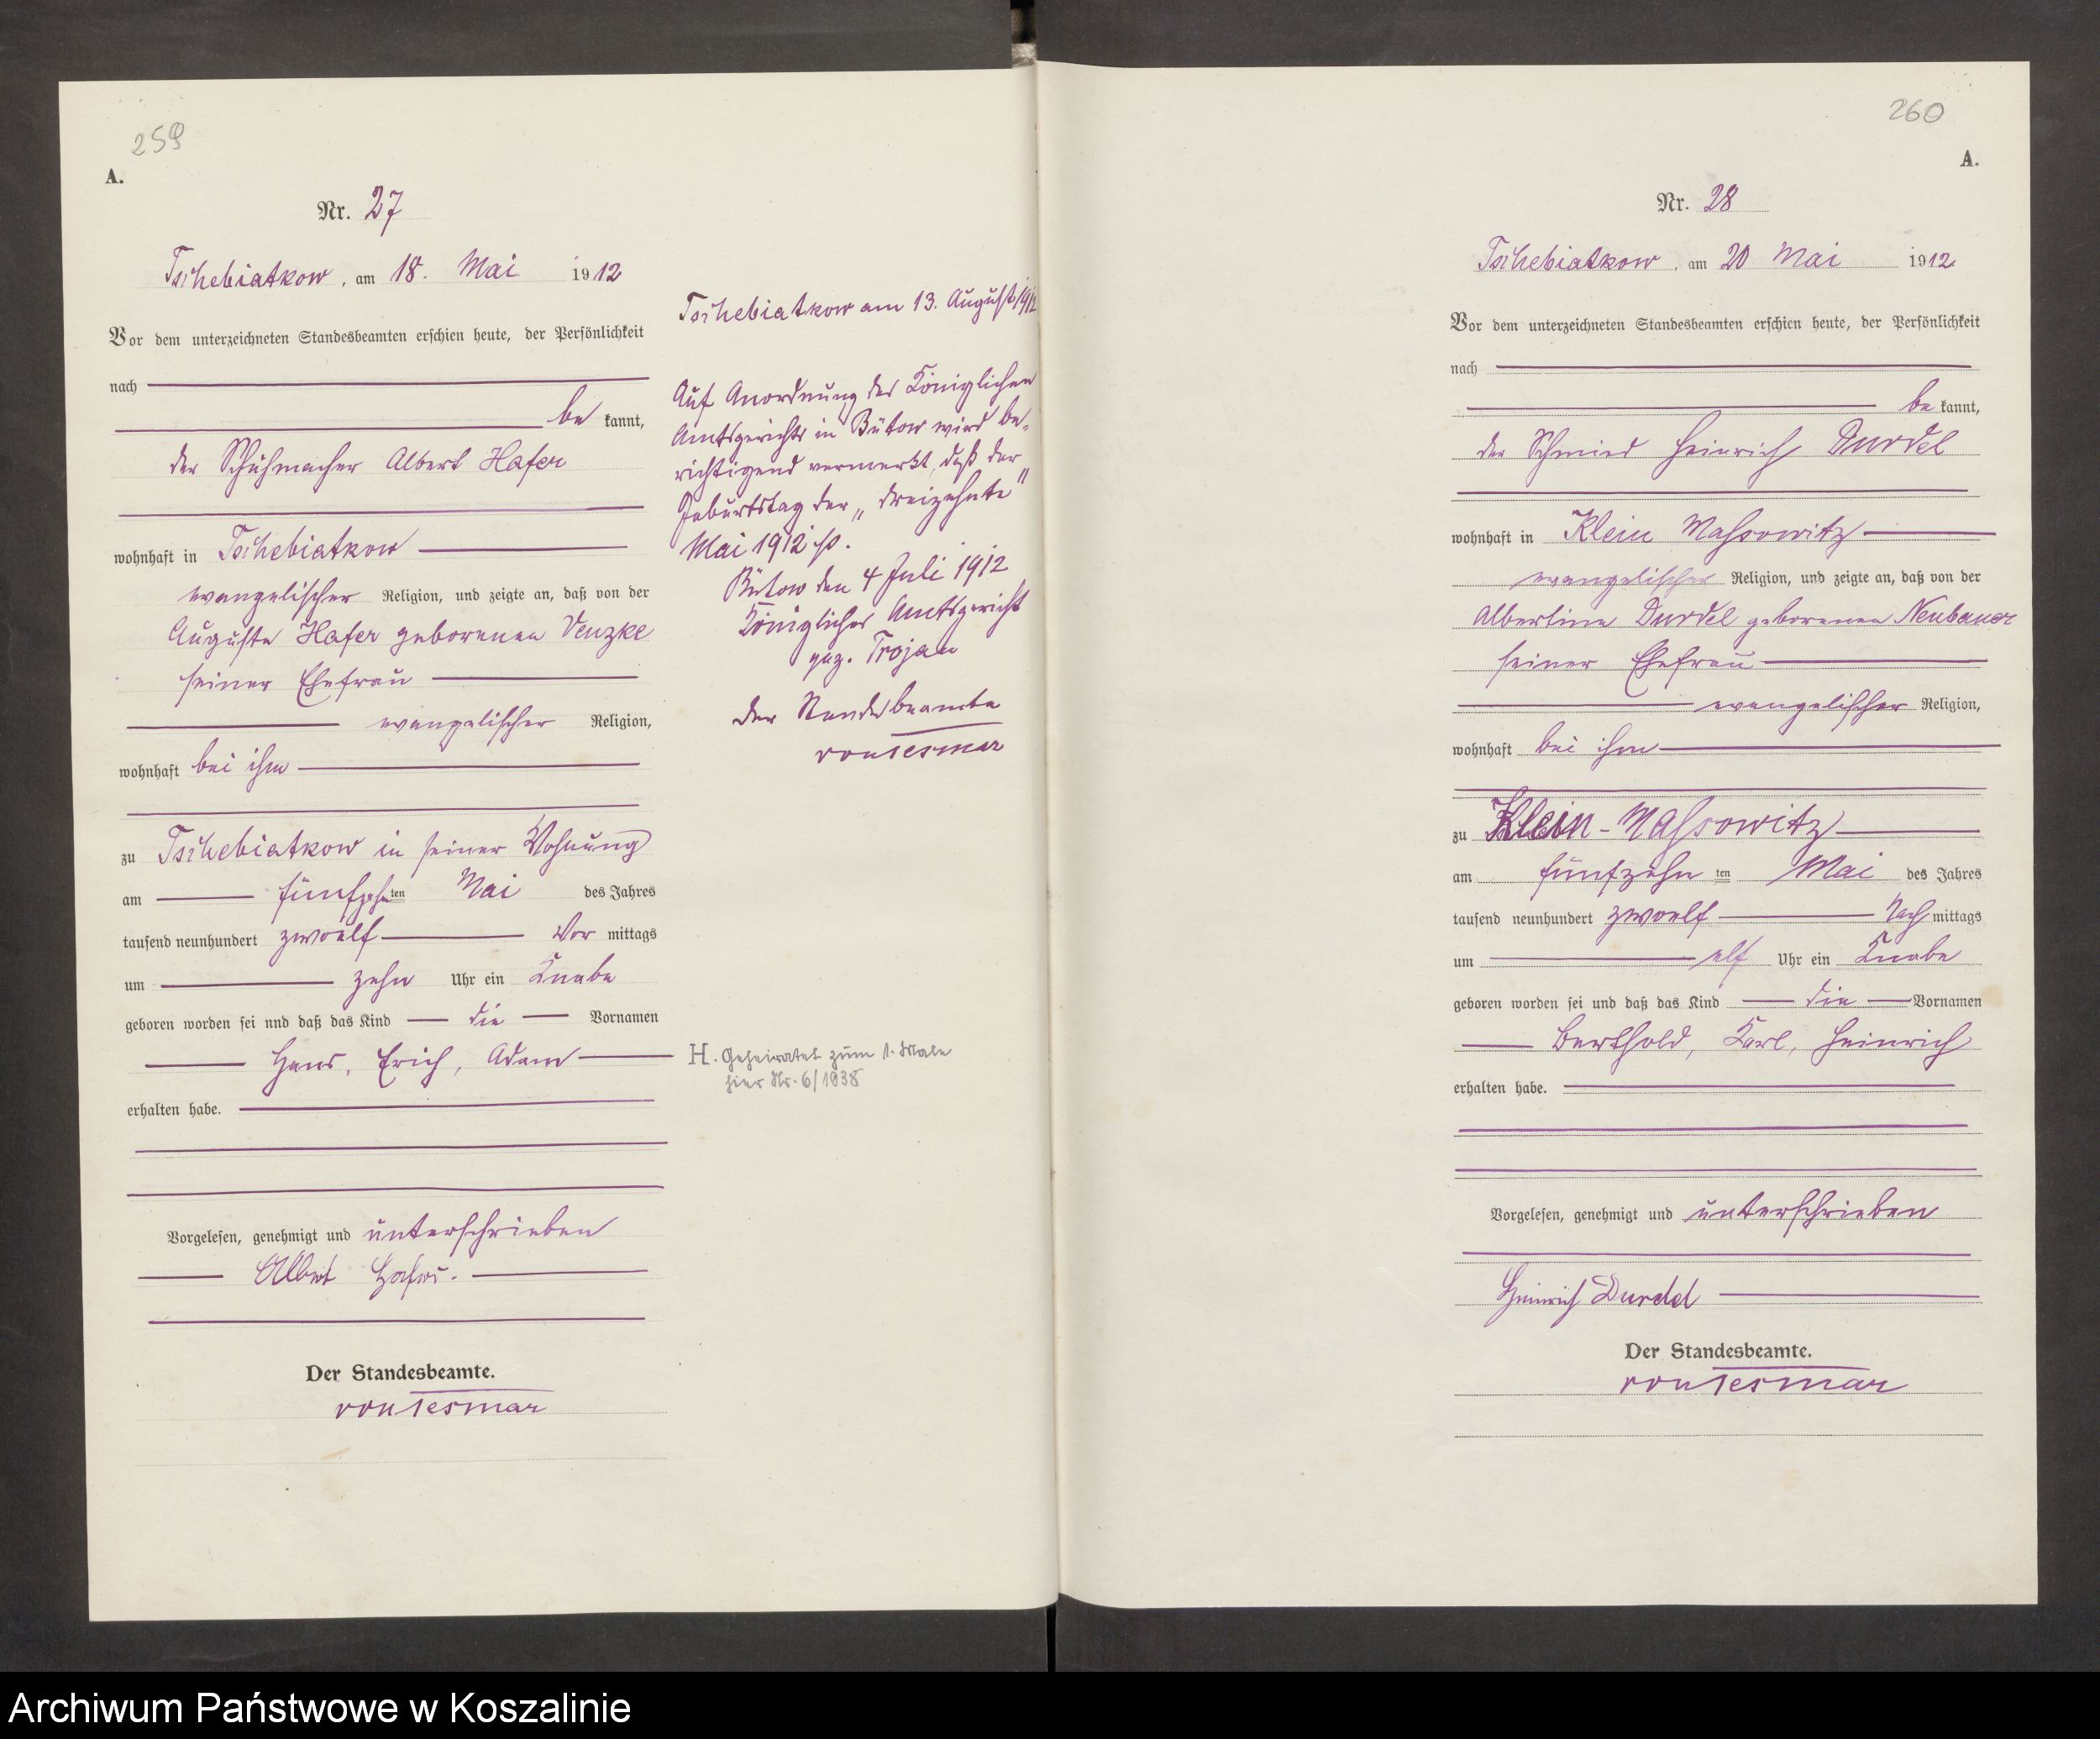 259
A.
Nr. 27
Tschebiatkow, am 18. Mai 1912
Vor dem unterzeichneten Standesbeamten erschien heute, der Persönlichkeit
nach
be kannt,
der Schuhmacher Albert Hafer
wohnhaft in Tschebiatkow
evangelischer Religion, und zeigte an, daß von der
Auguste Hafer geborenen Venzke
seiner Ehefrau
evangelischer Religion,
wohnhaft bei ihm
zu Tschebiatkow in seiner Wohnung
am fünfzehn ten Mai des Jahres
tausend neunhundert zwoelf Vor mittags
um zehn Uhr ein Knabe
geboren worden sei nnd daß das Kind die Vornamen
Hans, Erich, Adam
erhalten habe.
Vorgelesen, genehmigt und unterschrieben
Albert Hafer.
Der Standesbeamte.
von Tesmar
Tschebiatkow am 13. August 1912
Auf Anordnung des Königlichen
Amtsgerichts in Bütow wird be-
richtigend vermerkt, daß der
Geburtstag der „dreizehnte"
Mai 1912 ist.
Bütow den 4 Juli 1912
Königliches Amtsgericht
gez. Trojan
Der Standesbeamte
von Tesmar
H. Geheiratet zum 1. Male
hier Nr. 6/1938
260
A.
Nr. 28
Tschebiatkow, am 20 Mai 1912
Vor dem unterzeichneten Standesbeamten erschien heute, der Persönlichkeit
nach
be kannt,
der Schmied Heinrich Durdel
wohnhaft in Klein Massowitz
evangelischer Religion, und zeigte an, daß von der
Albertine Durdel geborenen Neubauer
seiner Ehefrau
evangelischer Religion,
wohnhaft bei ihm
zu Klein-Massowitz
am fünfzehn ten Mai des Jahres
tausend neunhundert zwoelf Nach mittags
um elf Uhr ein Knabe
geboren worden sei und daß das Kind die Vornamen
Berthold, Karl, Heinrich
erhalten habe.
Vorgelesen, genehmigt und unterschrieben
Heinrich Durdel
Der Standesbeamte.
von Tesmar
Archiwum Państwowe w Koszalinie